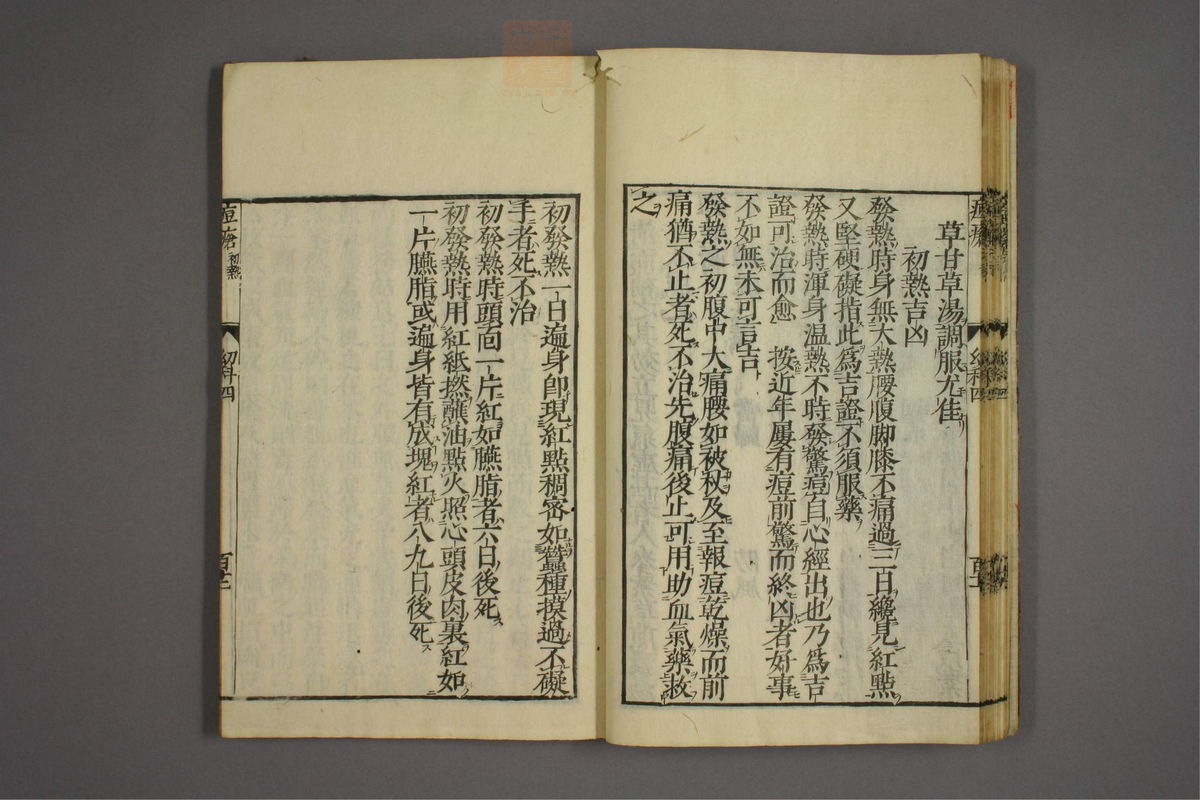 草甘草湯調服尤佳
初熱吉凶
發熱時身無大熱腰腹脚膝不痛過三日纔見紅點
又堅硬礙指此爲吉證不須服藥
發熱時渾身温熱不時發驚痘自心經出也乃爲吉
證可治而愈 按近年屢有痘前驚而終凶者好事
不如無未可言吉
發熱之初腹中大痛腰如被杖及至報痘乾燥而前
痛猶不止者死不治先腹痛後止可用助血氣藥救
之
初發熱一日遍身卽現紅點稠密如蠶種摸過不礙
手者死不治
初發熱時頭面一片紅如臙脂者六日後死
初發熱時用紅紙撚蘸油點火照心頭皮肉裏紅如
一片臙脂或遍身皆有成塊紅者八九日後死
痘瘡 初熱
幼科四